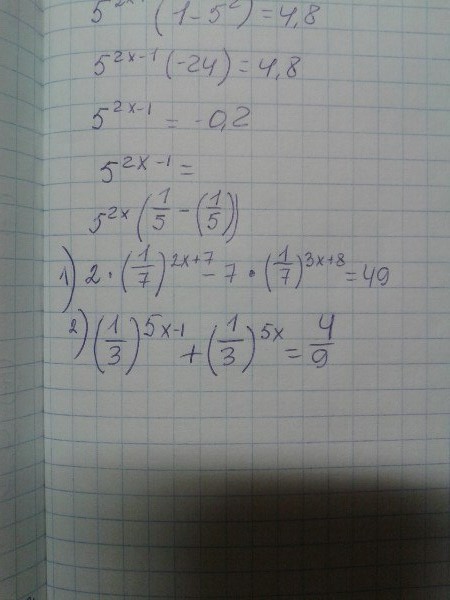 5^{2x-1}(1-5^2)=4,8
5^{2x-1}(-24)=4,8
5^{2x-1}=-0,2
5^{2x-1}=
5^{2x}(\frac{1}{5}-(\frac{1}{5}))
1) 2·(\frac{1}{7})^{2x+7}-7·(\frac{1}{7})^{3x+8}=49
2) (\frac{1}{3})^{5x-1}+(\frac{1}{3})^{5x}=\frac{4}{9}